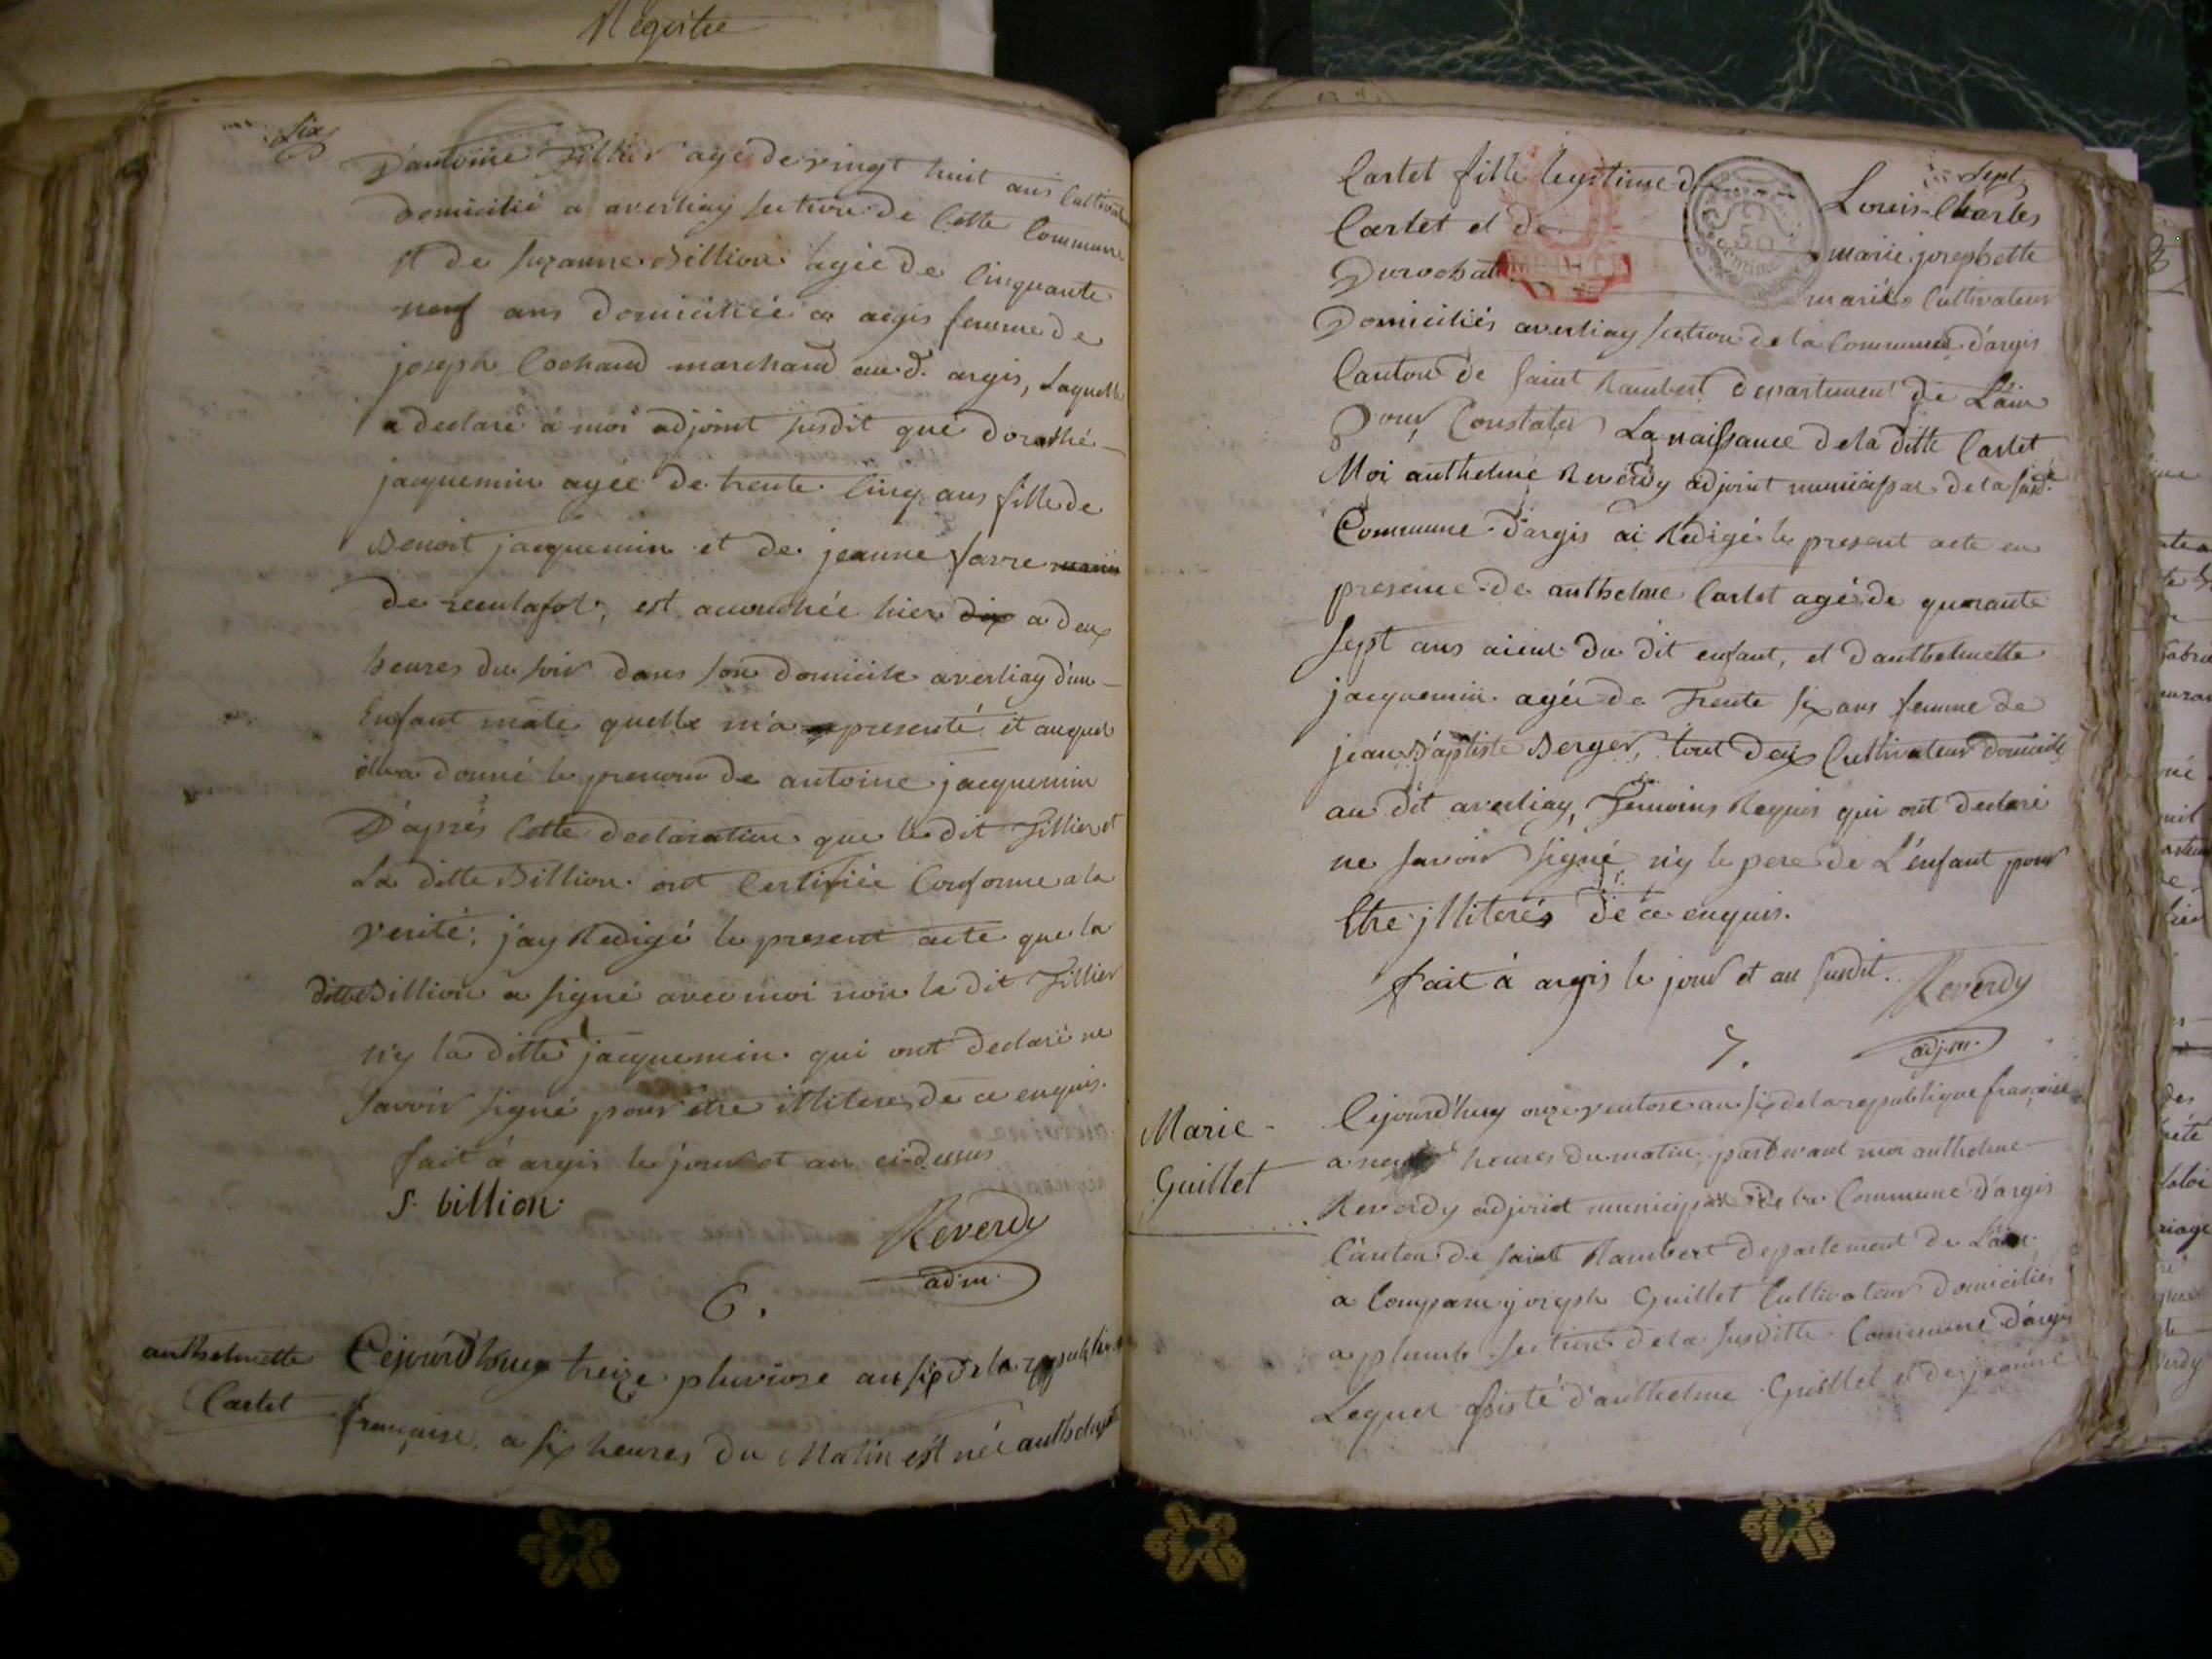 Registre
Six
D'antoine Tillier agé de vingt huit ans Cultivateur
Domicilié a averliay section de Cette Commune
et de suzanne Billion agée de Cinquante
neuf ans Domiciliée a argis femme de
joseph Cochaud marchand aud. argis, Laquelle
a declaré à moi adjoint susdit que dorothé-
jacquemin agée de trente Cinq ans fille de
Benoit jacquemin et de jeanne favre
de reculafol, est acouchée hier a deux
heures du soir dans son domicile averliay d'un-
Enfant mâle quelle m'a presenté et auquel
ella donné le prenom de antoine jacquemin
D'aprés Cette declaration que le dit Tillier et
La ditte Billion ont Certifiée Conforme a la
verité; jay Redigé le present acte que la
ditte Billion a signé avec moi non le dit Tillier
n'y la ditte jacquemin qui ont declaré ne
savoir signé pour être illiterés de ce enquis.
fait à argis le jour et an ci-dessus
S. billion
Reverdy
adm.
6.
anthelmette
Cartet
Cejourd'huy treize pluviose an six de la republique
française, a six heures du Matin est née anthelmette
Sept
Cartet fille legitime de Louis-Charles
Cartet et de marie josephette
Durochat mariés Cultivateur
50
Centime
Domiciliés averliay section de la Commune d'argis
Canton de saint Rambert departement de L'ain
Pour Constater La naissance de la ditte Cartet
Moi anthelme Reverdy adjoint municipal de la susd.e
Commune d'argis ai Redigé le present acte en
presence de anthelme Cartet agé de quarante
sept ans aieul du dit enfant, et d'anthelmette
jacquemin agée de Trente six ans femme de
jean Baptiste Berger, tout deux Cultivateur domicilié
au dit averliay, Temoins Requis qui ont declaré
ne savoir signé n'y le pere de L'enfant pour
Etre jlliterés de ce enquis.
fait à argis le jour et an susdit.
Reverdy
adj. m.
7.
Marie-
Guillet
Cejourd'huy onze ventose an six de la republique française
a heures du matin, pardevant moi anthelme
Reverdy adjoint municipal de la Commune d'argis
Canton de saint Rambert departement de L'ain
a Comparu joseph Guillet Cultivateur domicilié
a plomb section de la susditte Commune d'argis
Lequel assisté d'anthelme Guillet et de jeanne